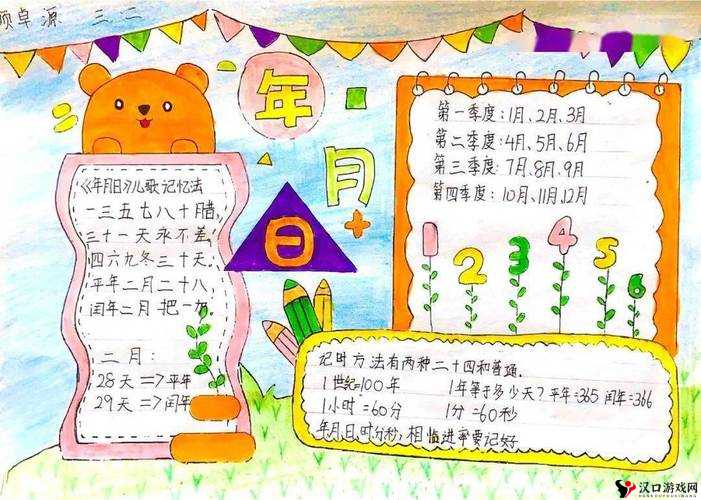 卓源 三.二
年
月
日
《年月日》儿歌记忆法
一三五七八十腊,
三十一天永不差,
四六九冬三十天.
平年二月二十八,
闰年二月把一加.
二月:
28天=>平年
29天=>闰年
第一季度:1月、2月、3月
第二季度:4月、5月、6月
第三季度:7月、8月、9月
第四季度:10月、11月、12月
1 2 3 4 5 6
记时方法有两种二十四和普通.
1世纪=100年 1年等于多少天?平年=365 闰年=366
1小时=60分 1分=60秒
年月日时分秒,相临进率要记好
汉口游戏网
HANKOUYOUXIWANG